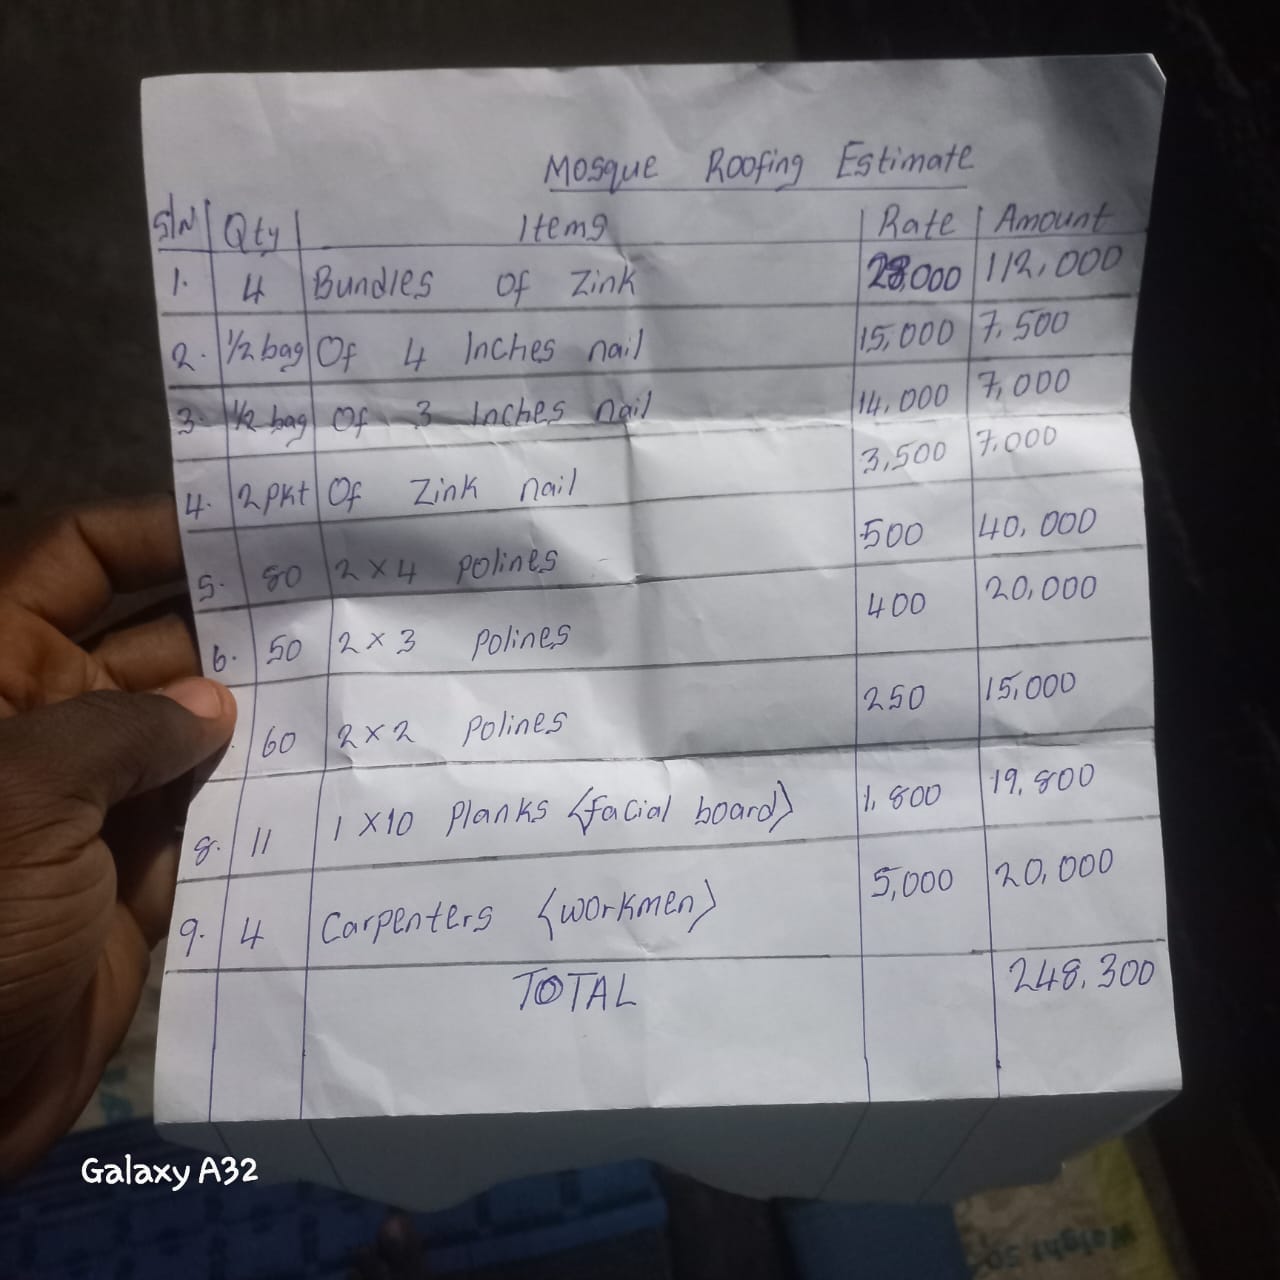 Mosque Roofing Estimate
S/N Qty Items Rate Amount
1. 4 Bundles Of Zink 28,000 112,000
2. 1/2 bag Of 4 Inches nail 15,000 7,500
3. 1/2 bag Of 3 Inches nail 14,000 7,000
4. 2pkt Of Zink nail 3,500 7,000
5. 80 2 x 4 Polines 500 40,000
6. 50 2 x 3 Polines 400 20,000
. 60 2 x 2 Polines 250 15,000
8. 11 1 x 10 Planks <facial board> 1,800 19,800
9. 4 Carpenters <workmen> 5,000 20,000
TOTAL 248,300
Galaxy A32
Weight 50